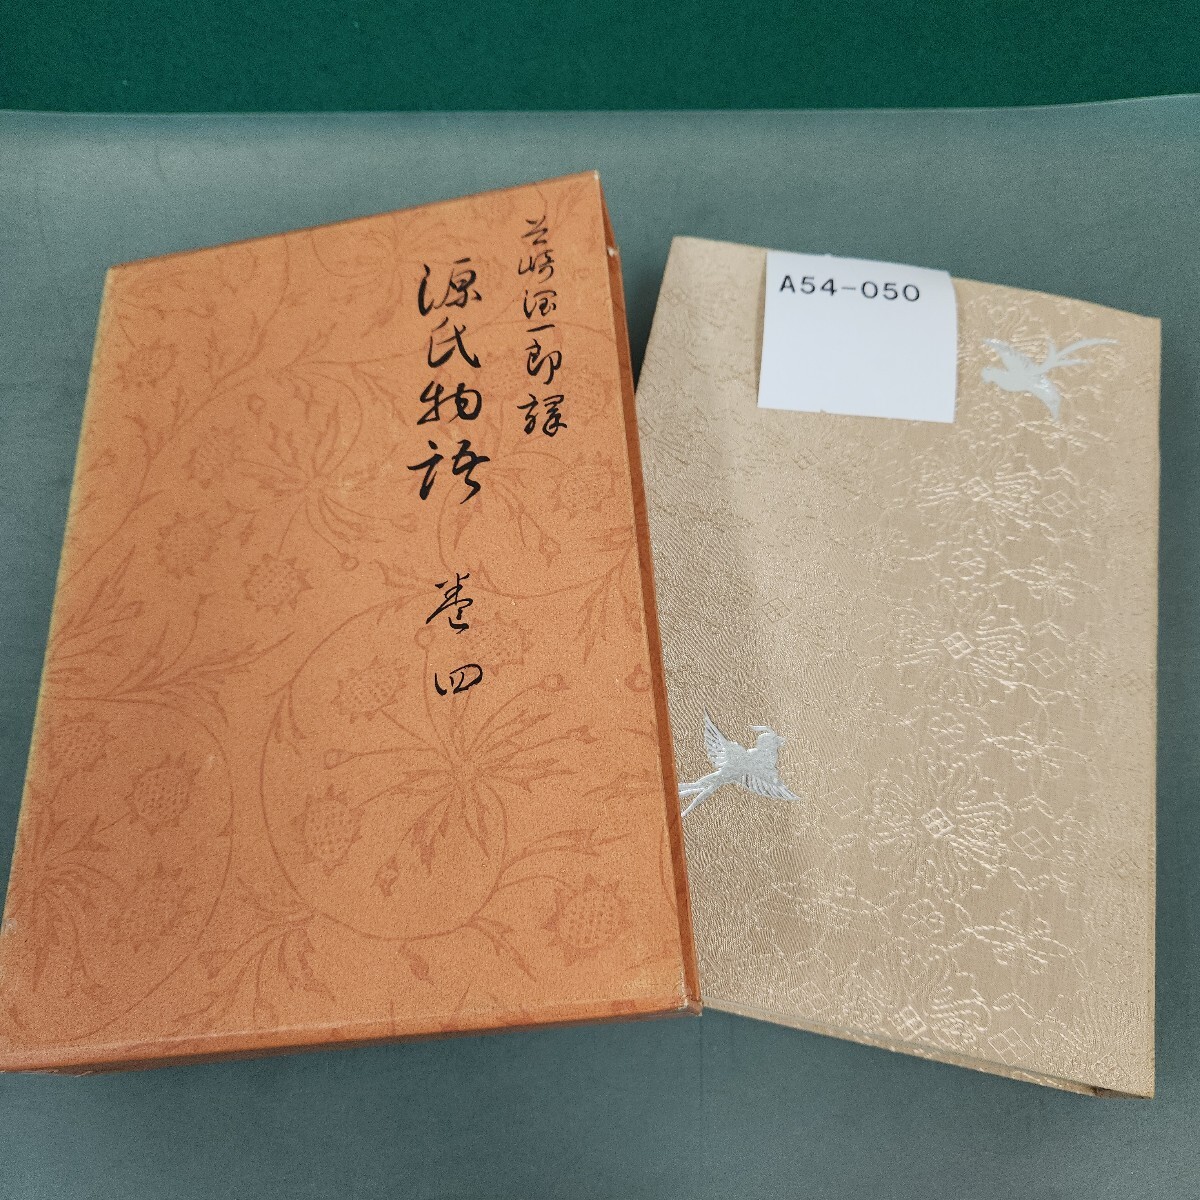 谷崎潤一郎譯
源氏物語 卷四
A54-050